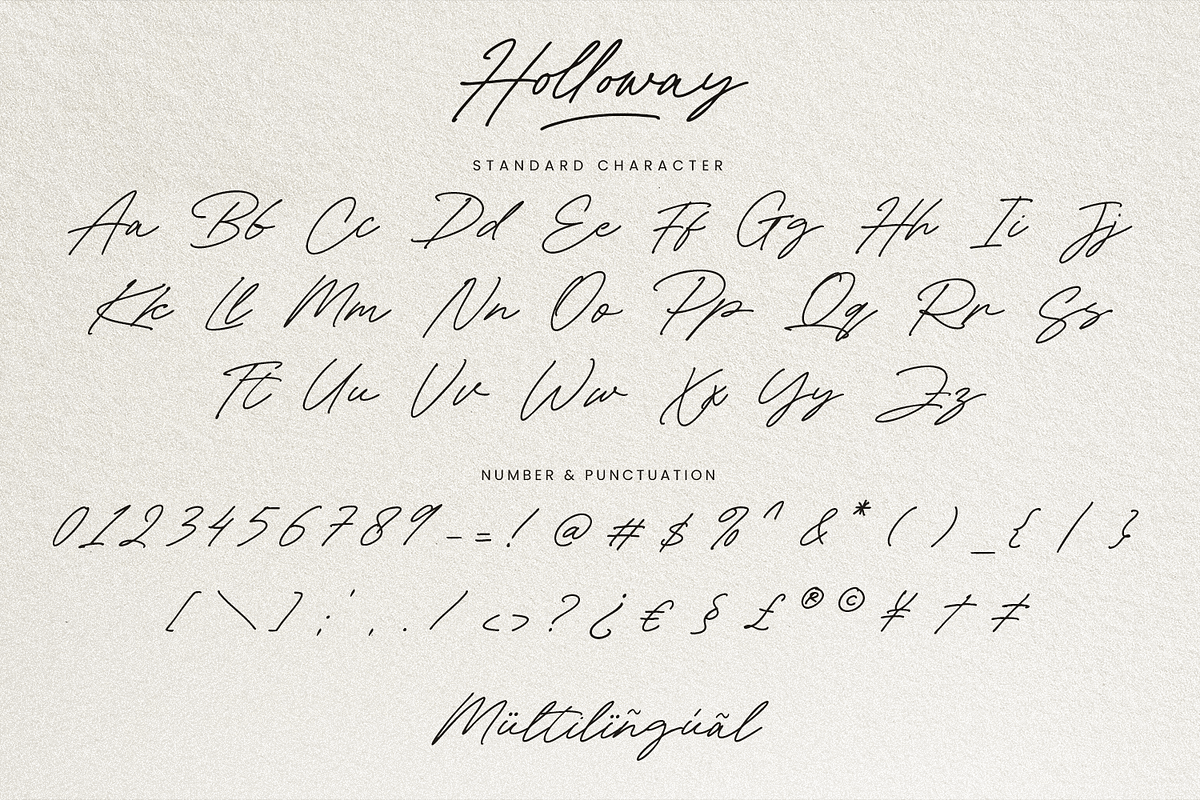 Holloway
STANDARD CHARACTER
Aa Bb Cc Dd Ee Ff Gg Hh Ii Jj
Kk Ll Mm Nn Oo Pp Qq Rr Ss
Tt Uu Vv Ww Xx Yy Zz
NUMBER & PUNCTUATION
0 1 2 3 4 5 6 7 8 9 - = ! @ # $ % ^ & * ( ) _ { | }
[ \ ] ; ' , . / < > ? ¿ € § £ ® © ¥ † ‡
Mültilïñgúãl